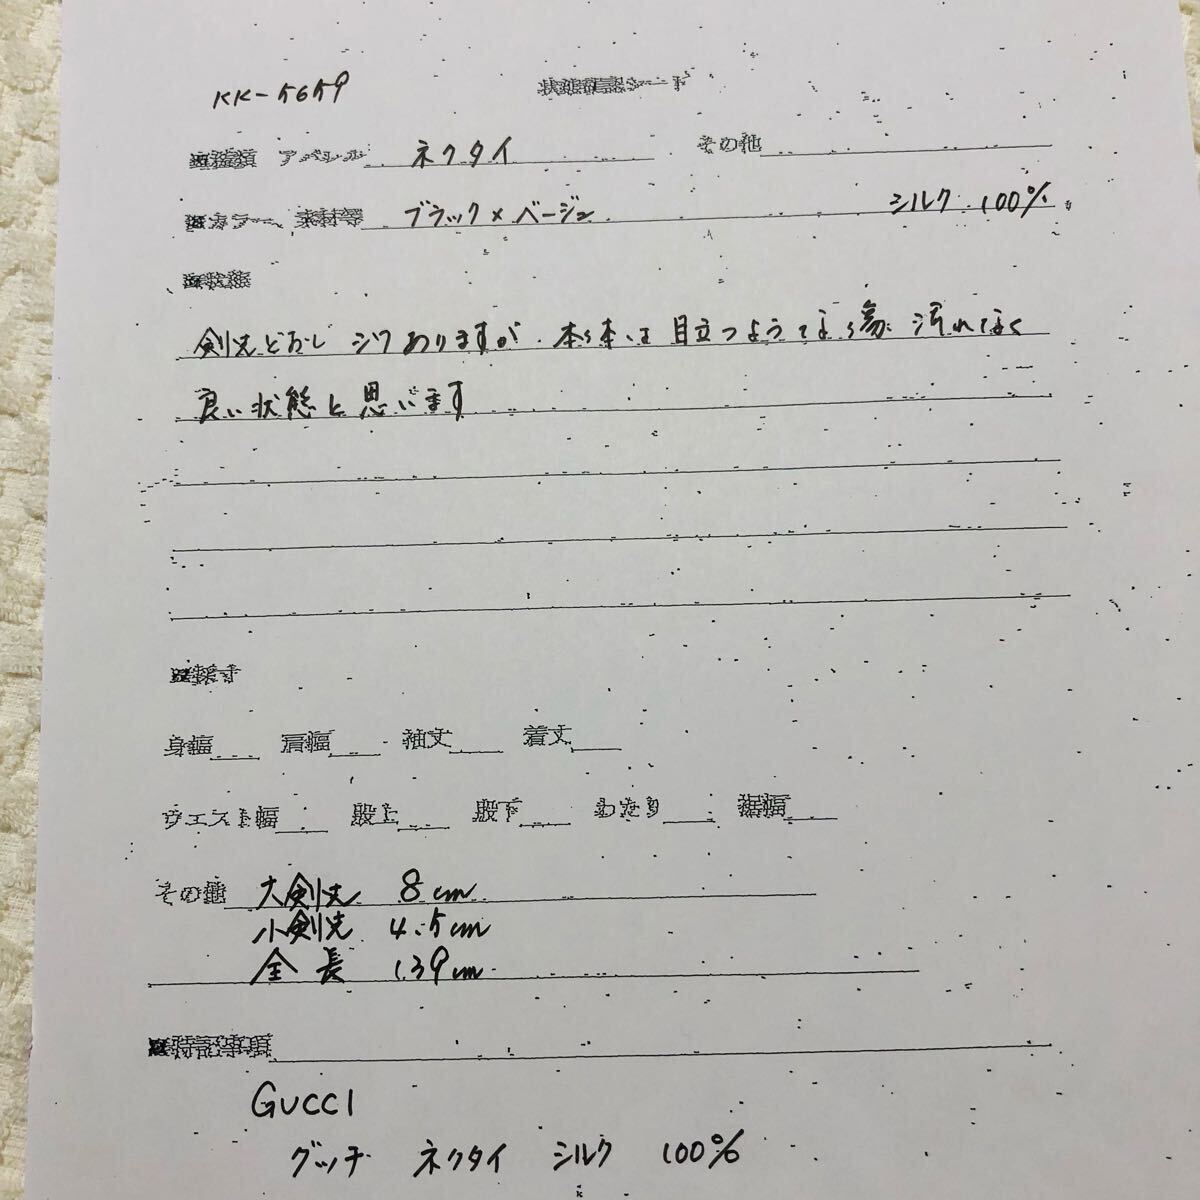 KK-5659 状態確認シート
■種類 アパレル ネクタイ その他
■カラー、素材等 ブラック×ベージュ シルク 100%
■状態
剣先どおし シワありますが、本体は目立つような 傷、汚れなく
良い状態と思います
■採寸
身幅 肩幅 袖丈 着丈
ウエスト幅 股上 股下 わたり 裾幅
その他 大剣先 8cm
小剣先 4.5cm
全長 139cm
■特記事項
GUCCI
グッチ ネクタイ シルク 100%